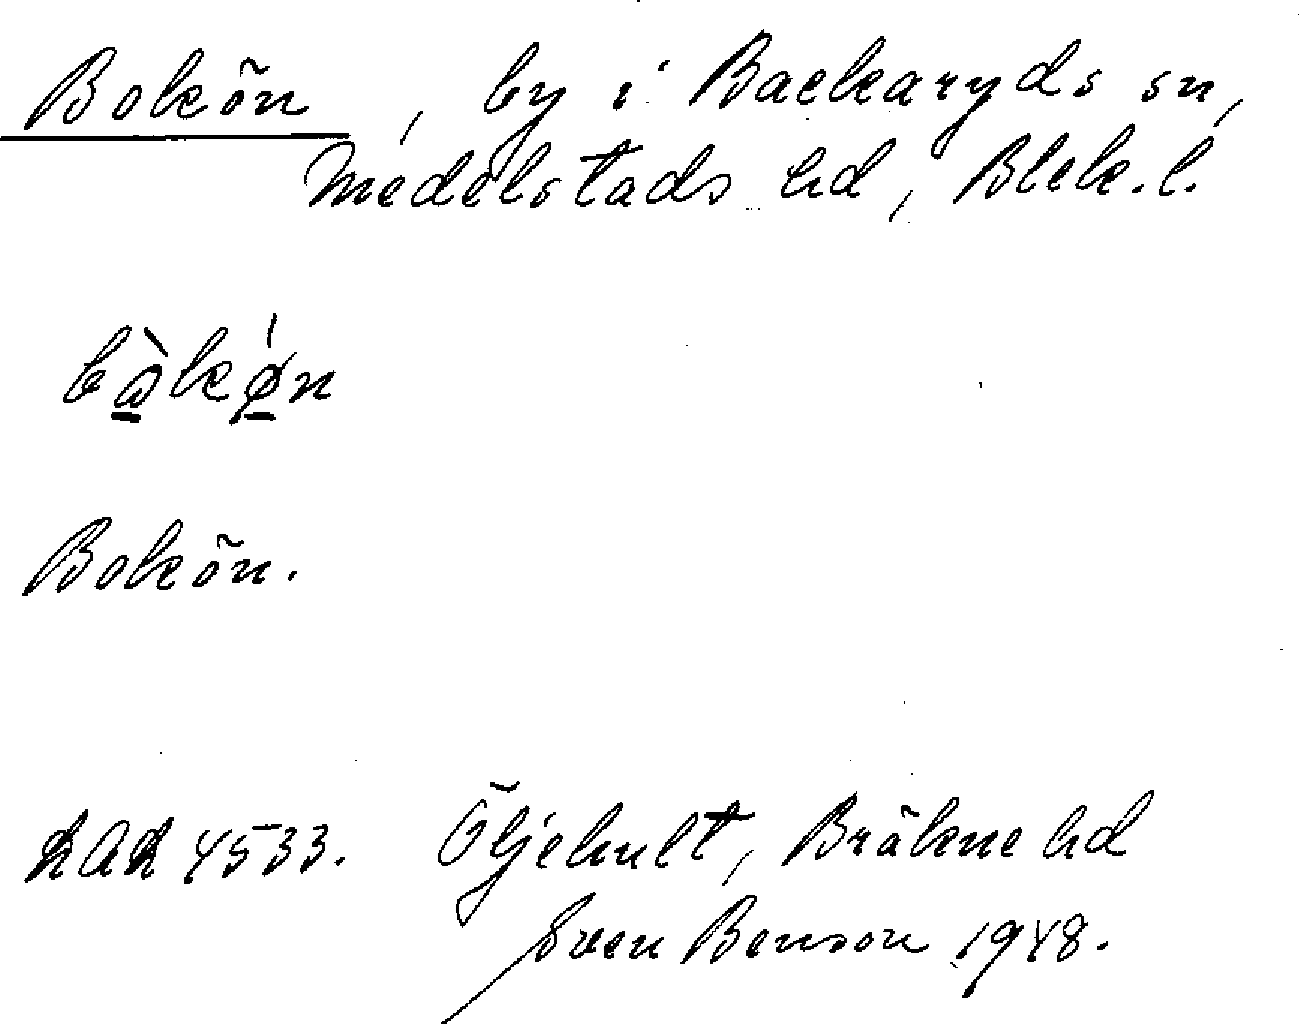 Bokön, by i Backaryds sn,
Medelstads hd, Blek. l.
bòkǿn
Bokön.
LAL 4533. Öljehult, Bräkne hd
Sven Benson 1948.